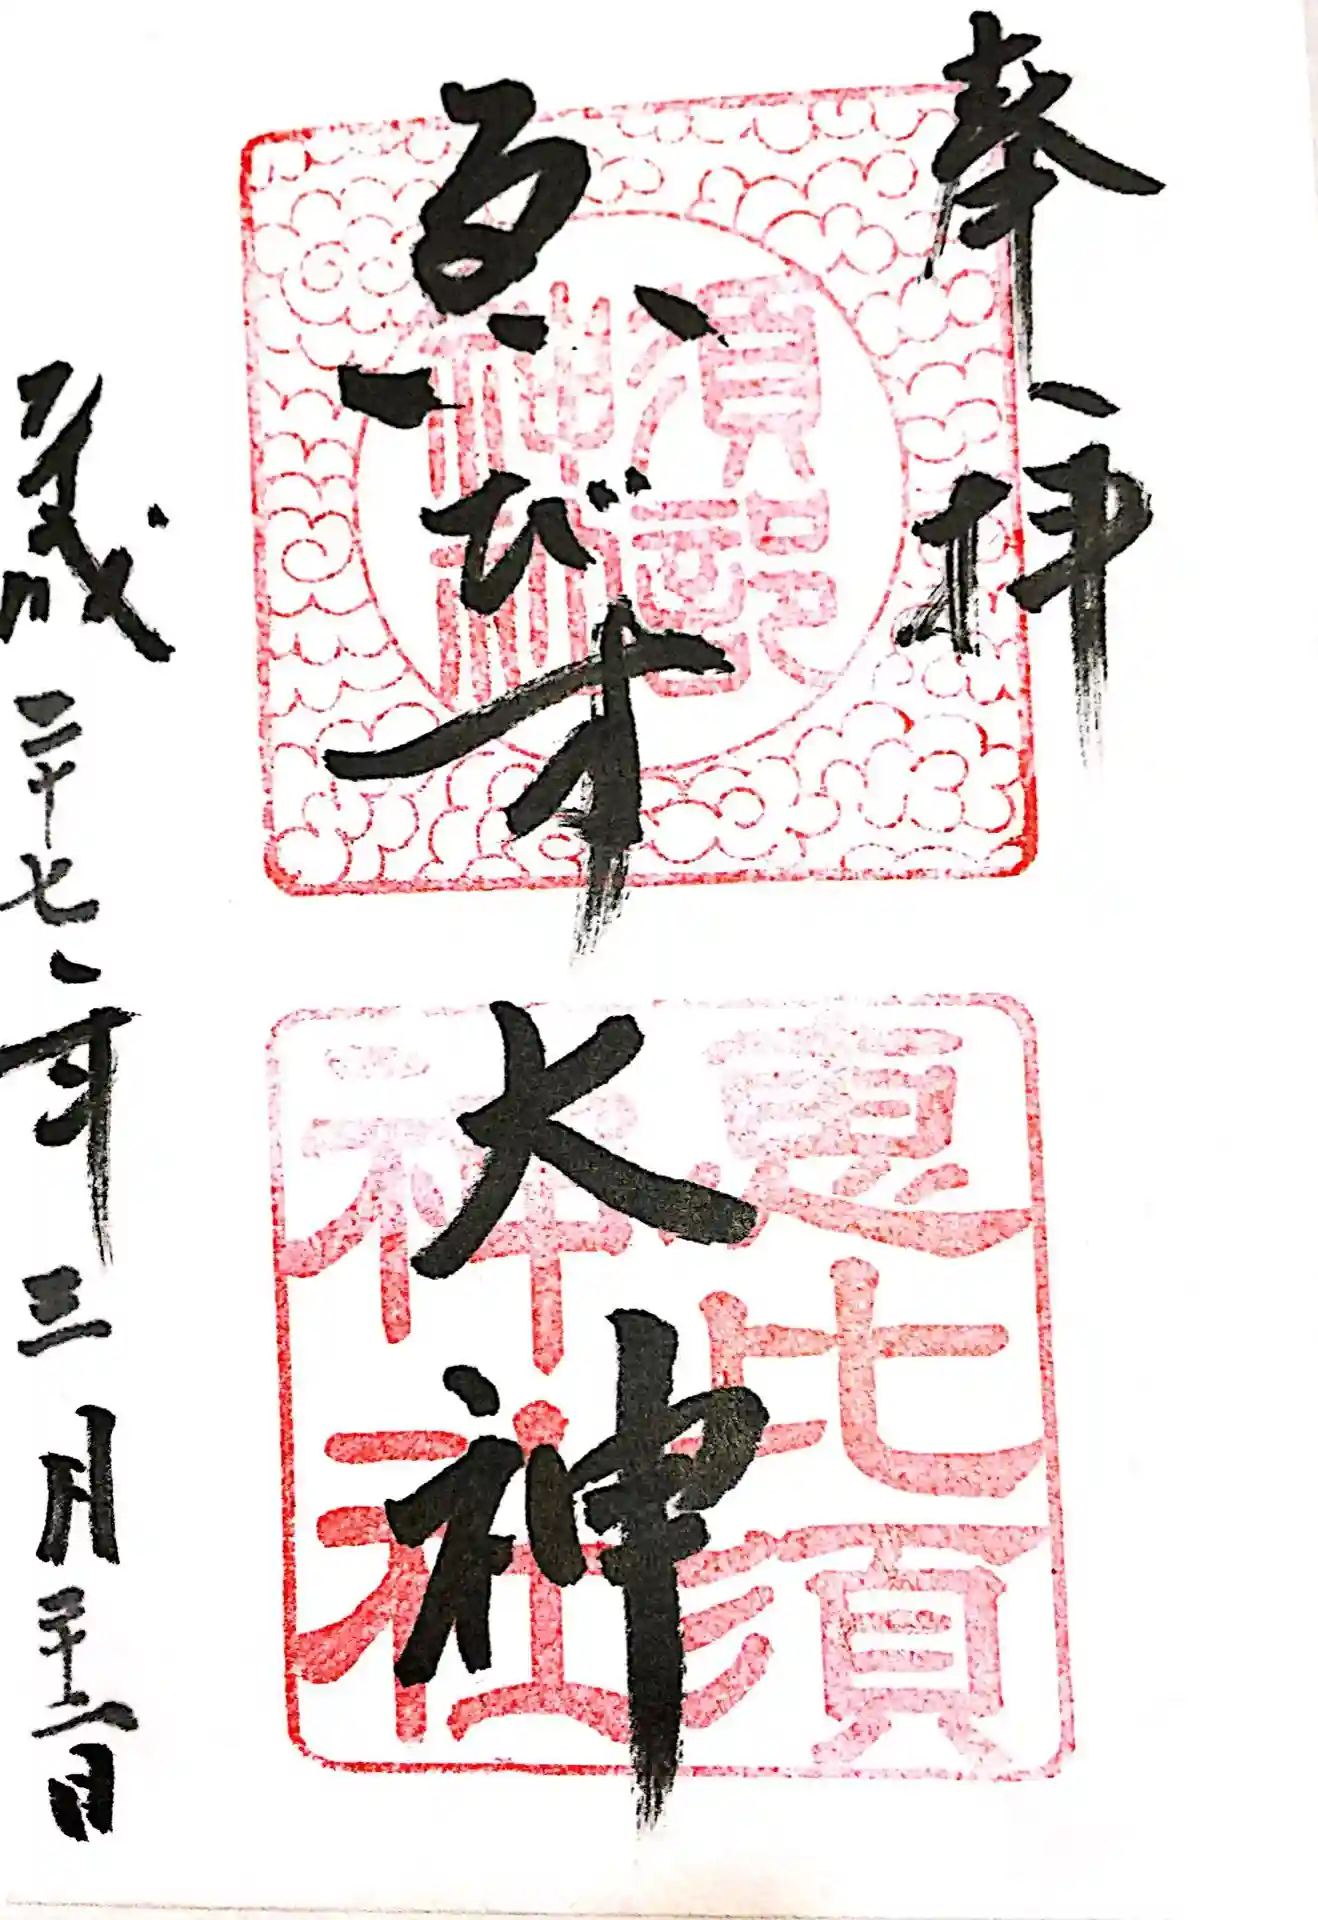 奉拝
須部
神社
ゑびす大神
惠比須
神社
平成二十七年三月二十二日